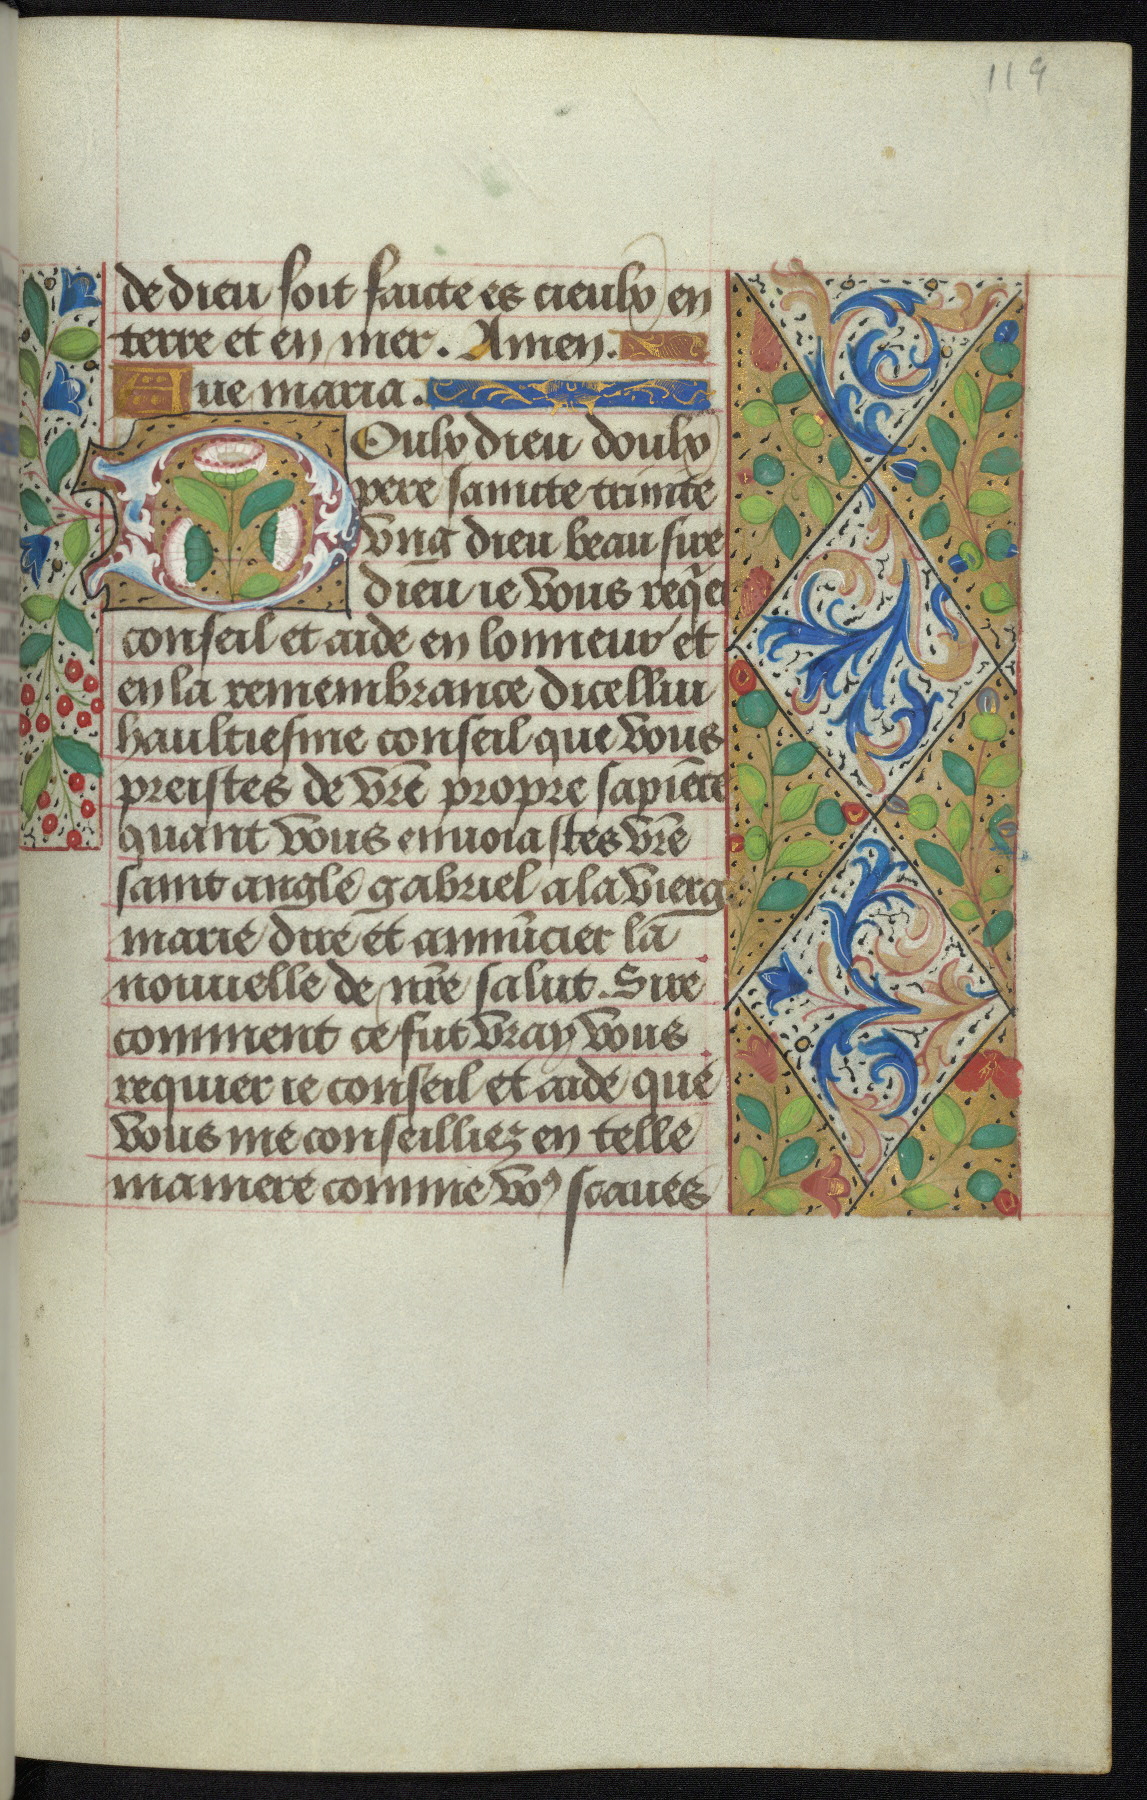 119
de dieu soit faicte es cieulx en
terre et en mer. Amen.
Aue maria.
Doulx dieu doulx
pere saincte trinite
vng dieu beau sire
dieu ie vous req̃er
conseil et aide en lonneur et
en la remembrance dicelluy
haultiesme conseil que vous
preistes de vr̃e propre sapiẽce
quant vous enuoiastes vr̃e
saint angle gabriel a la vierg
marie dire et annũcier la
nouuelle de nr̃e salut. Sire
comment ce fut vray vous
requier ie conseil et aide que
vous me conseilliez en telle
maniere comme vo⁹ scaues